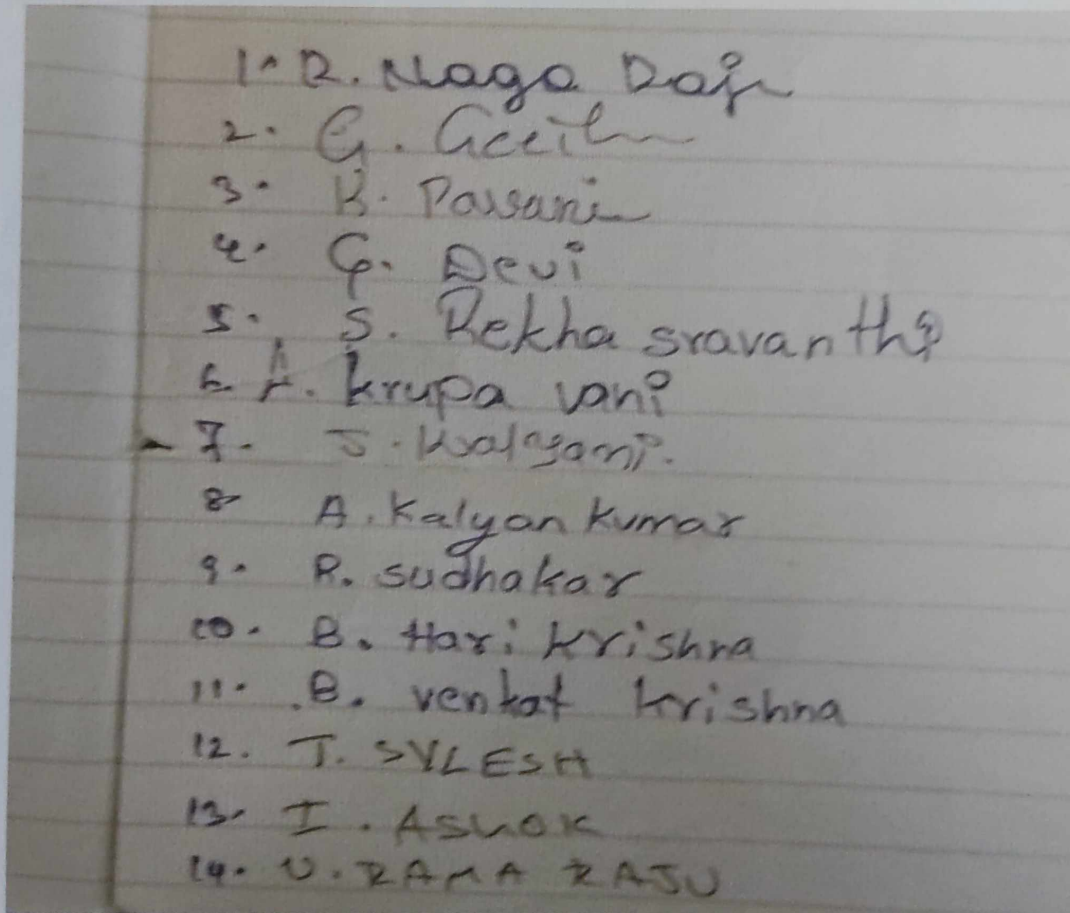 1. R. Naga Raju
2. G. Geeth
3. B. Pavani
4. G. Devi
5. S. Rekha sravanthi
6. A. krupa vani
7. J. Kalyani.
8 A. Kalyan Kumar
9. R. sudhakar
10. B. Hari Krishna
11. B. venkat krishna
12. T. SYLESH
13. I. ASHOK
14. U. RAMA RAJU